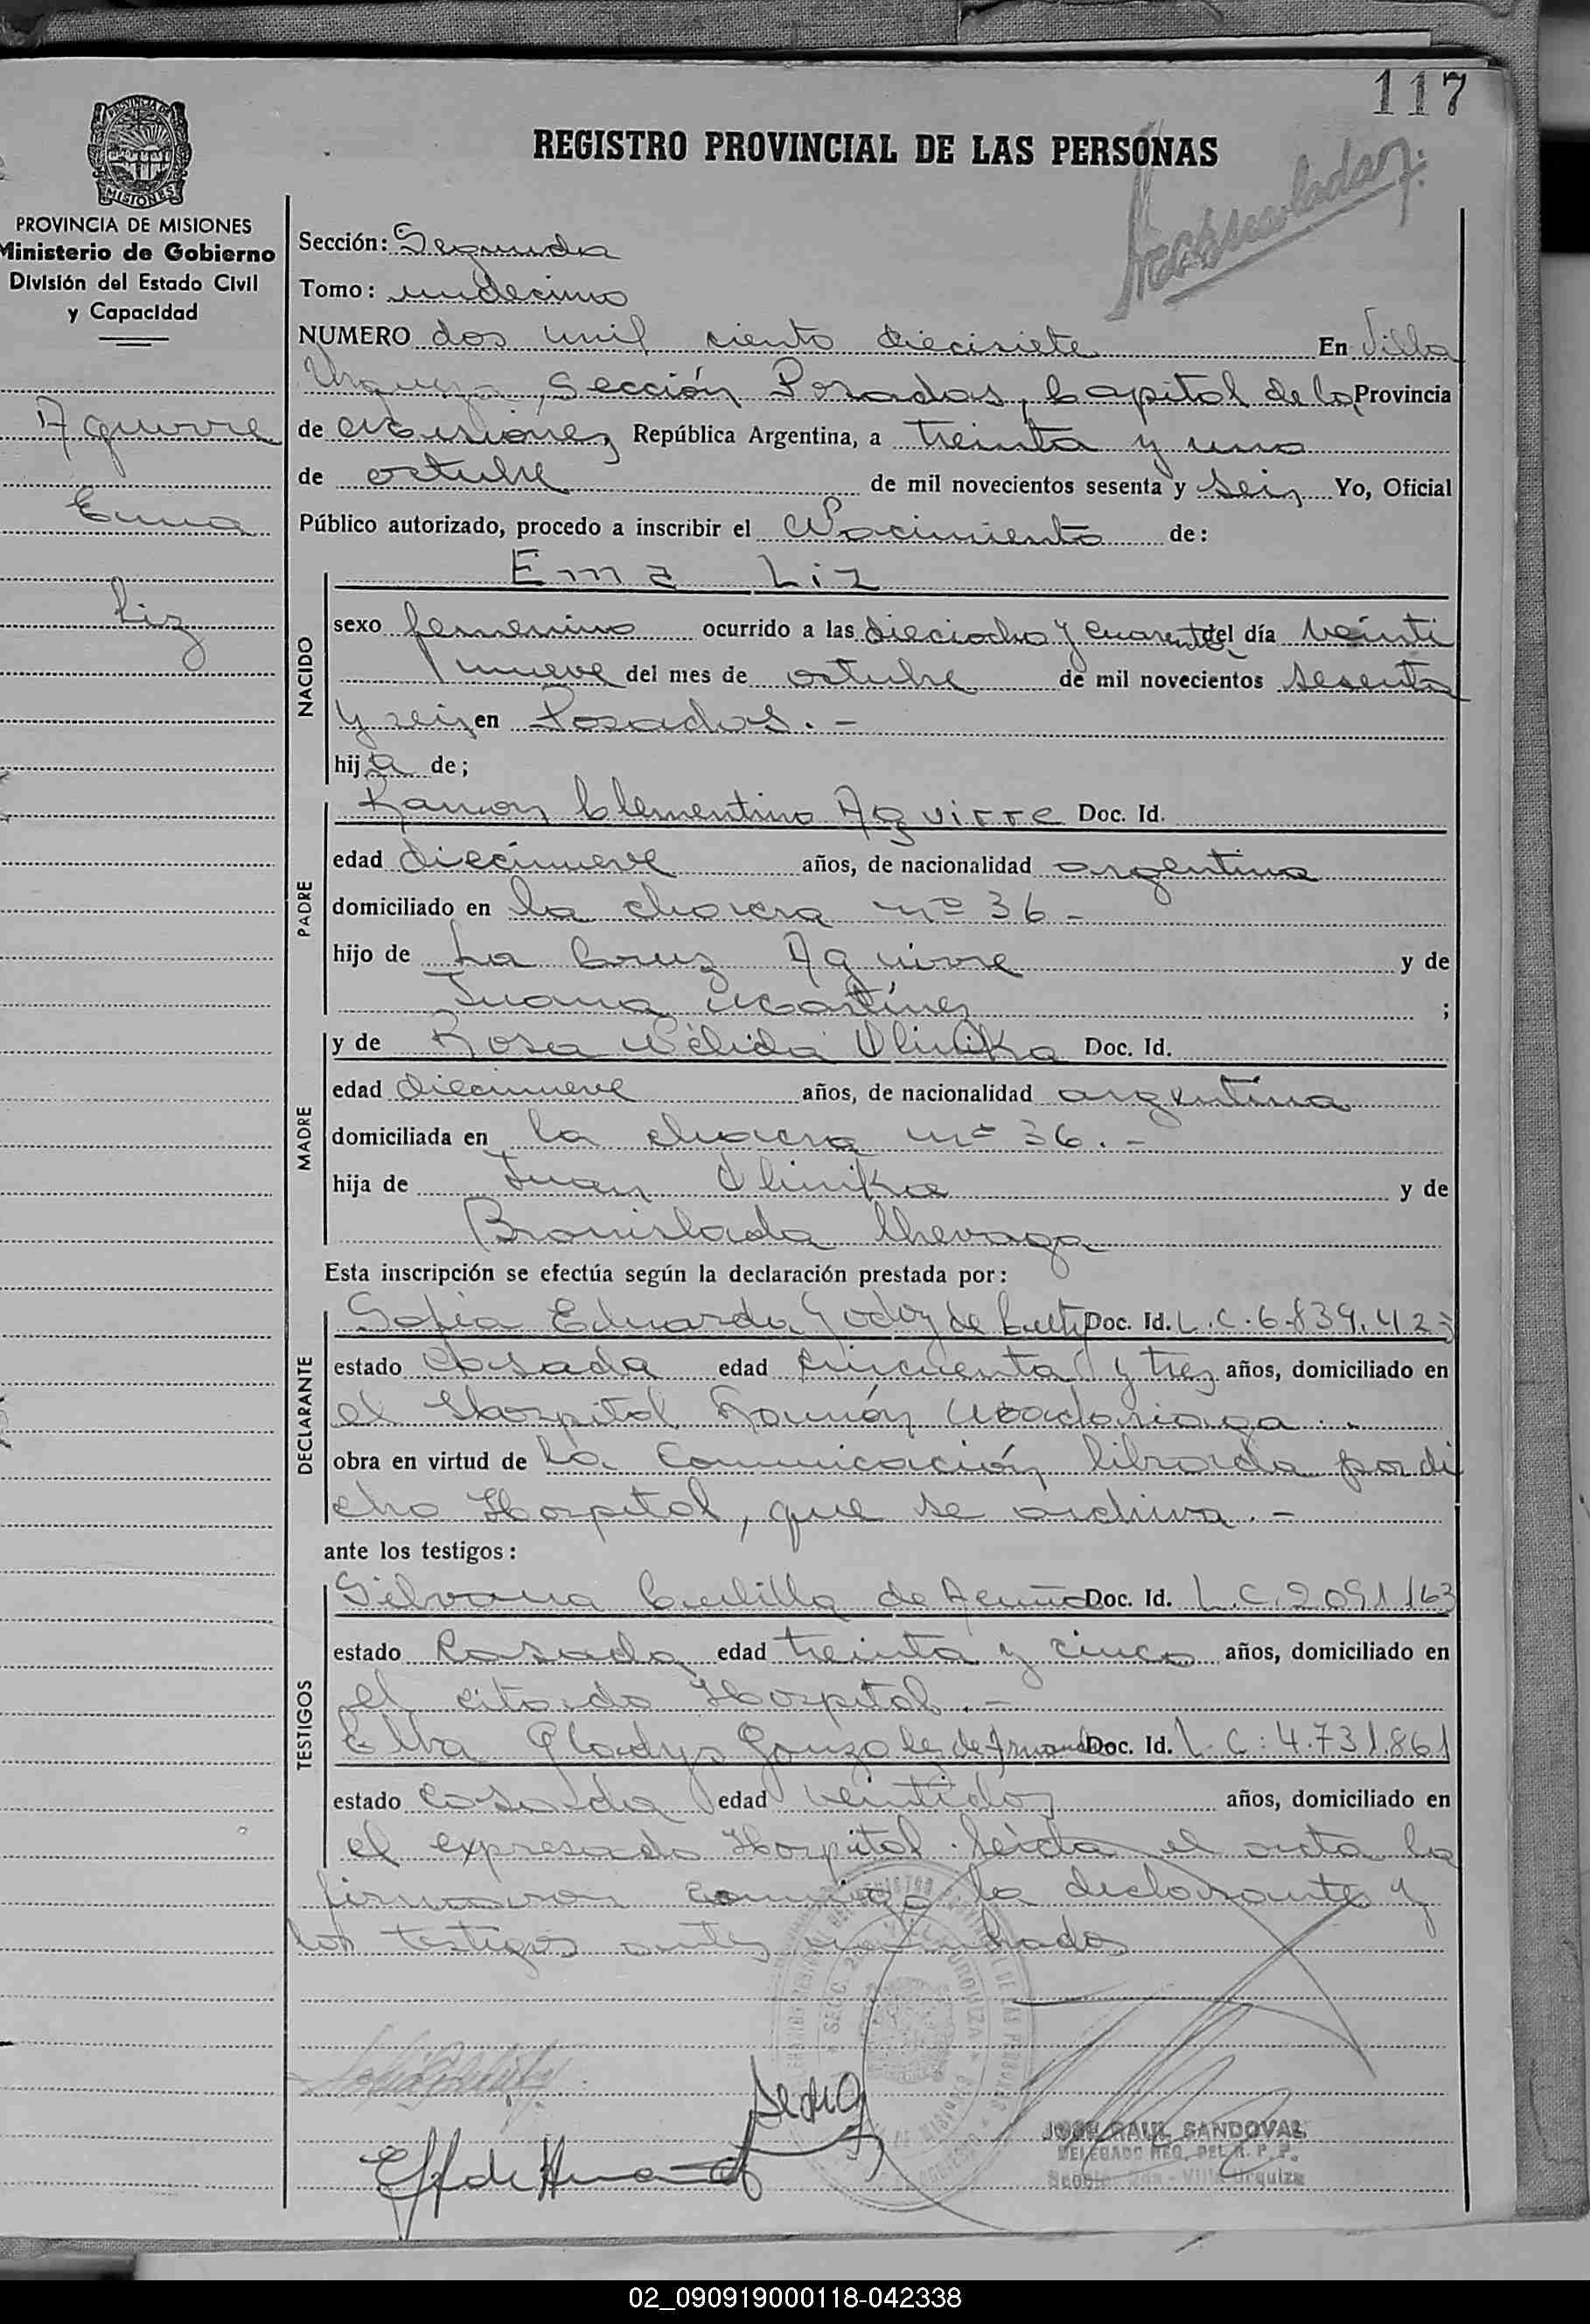 117
REGISTRO PROVINCIAL DE LAS PERSONAS
MISIONES
PROVINCIA DE MISIONES
Ministerio de Gobierno
División del Estado Civil
y Capacidad
Aguirre
Ema
Liz
Sección: Segunda
Tomo: undecimo
NUMERO dos mil ciento diecisiete En Villa
Urquiza, Sección Posadas, Capital de la Provincia
de Misiones República Argentina, a treinta y uno
de octubre de mil novecientos sesenta y seis Yo, Oficial
Público autorizado, procedo a inscribir el Nacimiento de:
NACIDO
Ema Liz
sexo femenino ocurrido a las dieciocho y cuarenta del día veinti
nueve del mes de octubre de mil novecientos sesenta
y seis en Posadas. -
hija de;
PADRE
Ramon Clementino Aguirre Doc. Id.
edad diecinueve años, de nacionalidad argentina
domiciliado en la chacra nº 36 -
hijo de La Cruz Aguirre y de
Juana Martínez ;
MADRE
y de Rosa Nélida Olinika Doc. Id.
edad diecinueve años, de nacionalidad argentina
domiciliada en la chacra nº 36. -
hija de Juan Olinika y de
Bronislada
Esta inscripción se efectúa según la declaración prestada por:
DECLARANTE
Sofia Eduarda Godoy de Doc. Id. L.C. 6.839.423
estado Casada edad cincuenta y tres años, domiciliado en
el Hospital Ramón Madariaga. -
obra en virtud de la comunicación librada por di
cho Hospital, que se archiva. -
ante los testigos:
TESTIGOS
Silvana de Acuña Doc. Id. L.C. 2091163
estado Casada edad treinta y cinco años, domiciliado en
el citado Hospital. -
Elba Gladys Gonzalez de Doc. Id. L.C: 4.731.861
estado casada edad veintidos años, domiciliado en
el expresado Hospital. leida el acta la
firmaron conmigo la declarante y
los testigos antes
JOSE RAUL SANDOVAL
DELEGADO REG. DEL R. P. P.
Villa Urquiza
02_090919000118-042338